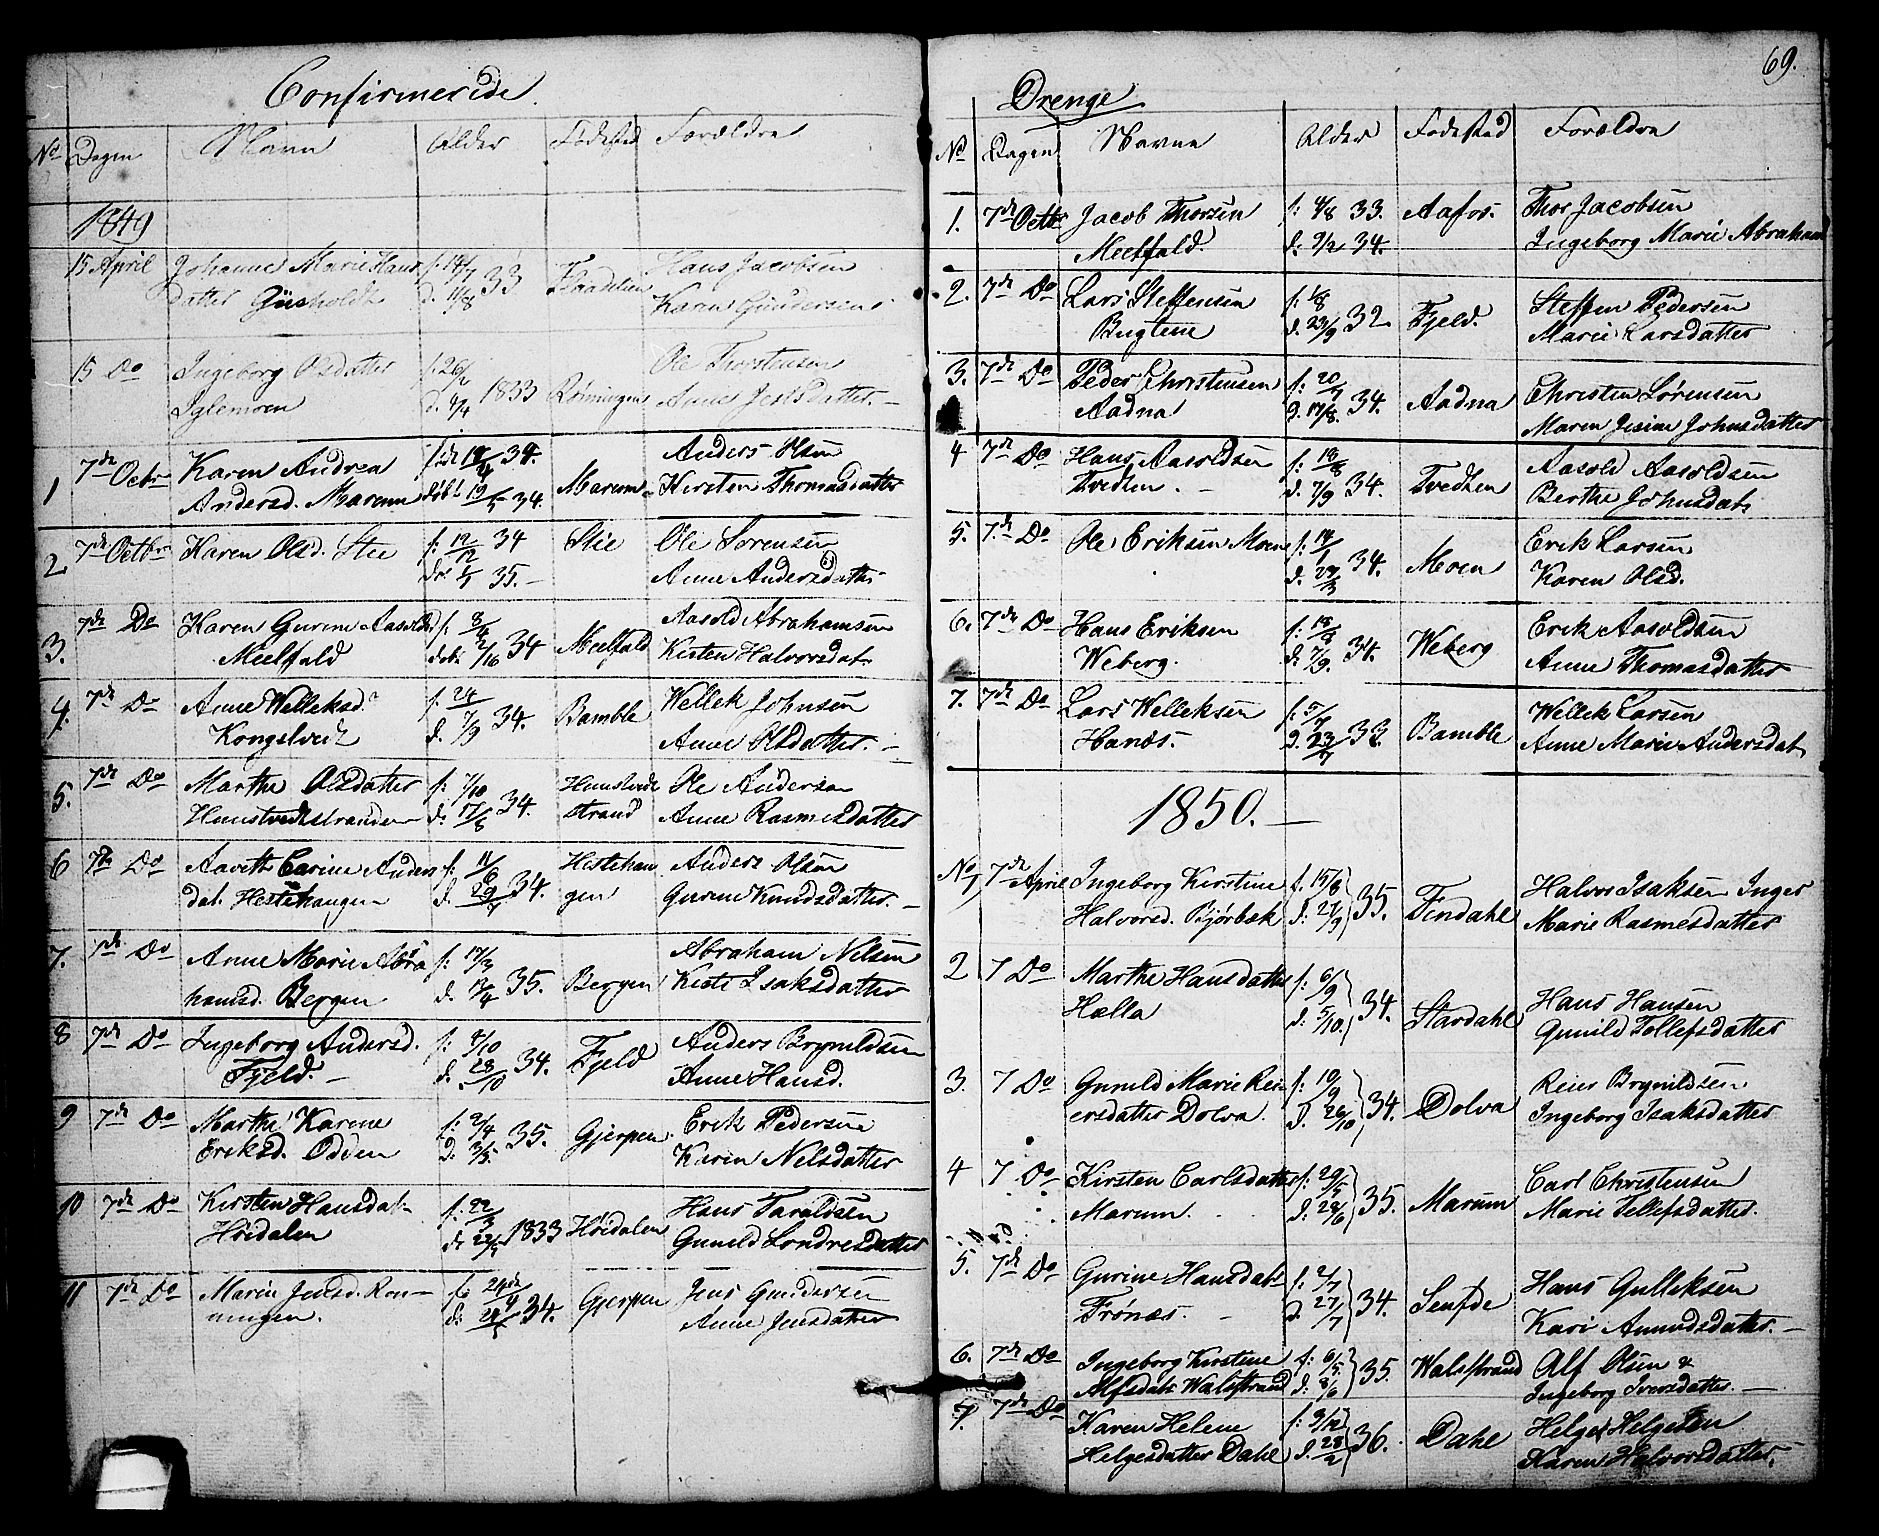 Confirmerede
No Dagen Navn Alder Fødested Forældre
1849
15 April Johanne Marie Hans f. 14/7 33 Hans Jacobsen
datter d. 11/8 Karen Gundersen
15 Do Ingeborg Olsdatter f. 26/2 1833 Ole Thorstensen
Iglemoen d. 4/4 Rønningen Anne
1 7de Octbr Karen Andrea 34. Marum Anders Olsen
Andersd. Marum døbt 34. Kirsten Thomasdatter
2 7de Octbr Karen Olsd. Stie f: 12/12 34 Stie Ole Sørensen
35.- Anne Andersdatter
3. 7de Do Karen Gurine Aasolds f. 34 Meelfald Aasold Abrahamsen
Meelfald Kirsten Halvorsdat.
4. 7de Do Anne Welleksd. f. 34. Bamble Wellek Johnsen
Kongstvedt d. 7/9 Anne Olsdatter. -
5. 7de Do Marthe Olsdatter f: 7/10 34. Hunstvedt Ole Andersen
Hunstvedtstranden d. strand Anne Rasmesdatter
6 7de Do Carine Anders f. 34. Hestehau Anders Olsen
dat. Hestehaugen d. gen Gurine Knudsdatter. -
7. 7de Do Anne Marie Abra f. 17/3 35. Bergen Abraham Nilsen
hamsd. Bergen d. Isaksdatter
8 7de Do Ingeborg Andersd. f: 34. Fjeld Anders Brynildsen
Fjeld. - d. 28/10 Anne Hansd.
9 7de Do Marthe Karine f: 2/4 35. Gjerpen. Erik Pedersen
Eriksd. Odden D. 3/5. Karen Nilsdatter
10 7de Do Kirsten Hansdat. f. 22/3 1833 Høidalen Hans Taraldsen
Høidalen Gunild
11 7de Do Maren Jensd. Røn- 34. Gjerpen Jens Gundersen
ningen. Anne Jensdatter
69.
Drenge
No Dagen Navne Alder Fødested Forældre
1. 7de Octbr Jacob Thorsen f: 4/8 33. Aafos. Thor Jacobsen
Meelfald. d. 9/2 34. Ingeborg Marie Abraham
2. 7de Do Lars Steffensen f: 1/8 32 Fjeld. Steffen Pedersen
Bugtene d. 23/9 Marie Larsdatter
3. 7de Do Peder Christensen f. 20/7 34. Aadna Christen Sørensen
Aadna D. 17/8. Maren Johnsdatter
4 7de Do Hans Aasoldsen f: 18/8 34. Tvedten Aasold Aasoldsen
Tvedten. - d. 7/9 Berthe Johnsdat.
5. 7de Do Ole Eriksen Moen f: 14/1 34. Moen Erik Larsen
d. Karen Olsd.
6. 7de Do Hans Eriksen f: 18/8 34. Weberg Erik Aasoldsen
Weberg. d. 7/9. Anne Thomasdatter
7. 7de Do Lars Welleksen f. 5/7 33. Bamble Wellek Larsen
Hanæs. D. 23/7 Anne Marie Andersdat.
1850. -
No 1 7de April Ingeborg Kirstine f. 15/8 35. Findahl Halvor Isaksen Inger
Halvorsd. Bjørbæk d. 27/9 Marie Rasmesdatter
2 7 Do Marthe Hansdatter f. 6/9 34. Stardahl Hans Hansen
Hella d: 5/10. Gunild Tollefsdatter
3. 7 Do Gunild Marie Rei f: 19/9 34. Dolva Reier Brynildsen
ersdatter Dolva. D. 26/10 Ingeborg Isaksdatter
4 7 Do Kirsten Carlsdatter f: 35. Marum Carl Christensen
Marum. d: Marie Tellefsdatter.
5. 7de Do Gurine Hansdat. f. 2/7 34. Hans Gulleksen
Frønæs. - d. 27/7 Kari Amundsdatter. -
6. 7de Do Ingeborg Kirstine f: 6/5 35. Walsstrand Alf Olsen &
Alfsdat. Walsstrand d: 8/6 Ingeborg Iversdatter. -
7. 7de Do Karen Helene f: 3/12 36. Dahl Helge Helgesen
Helgesdatter Dahl d. 28/2 Karen Halvorsdatter.